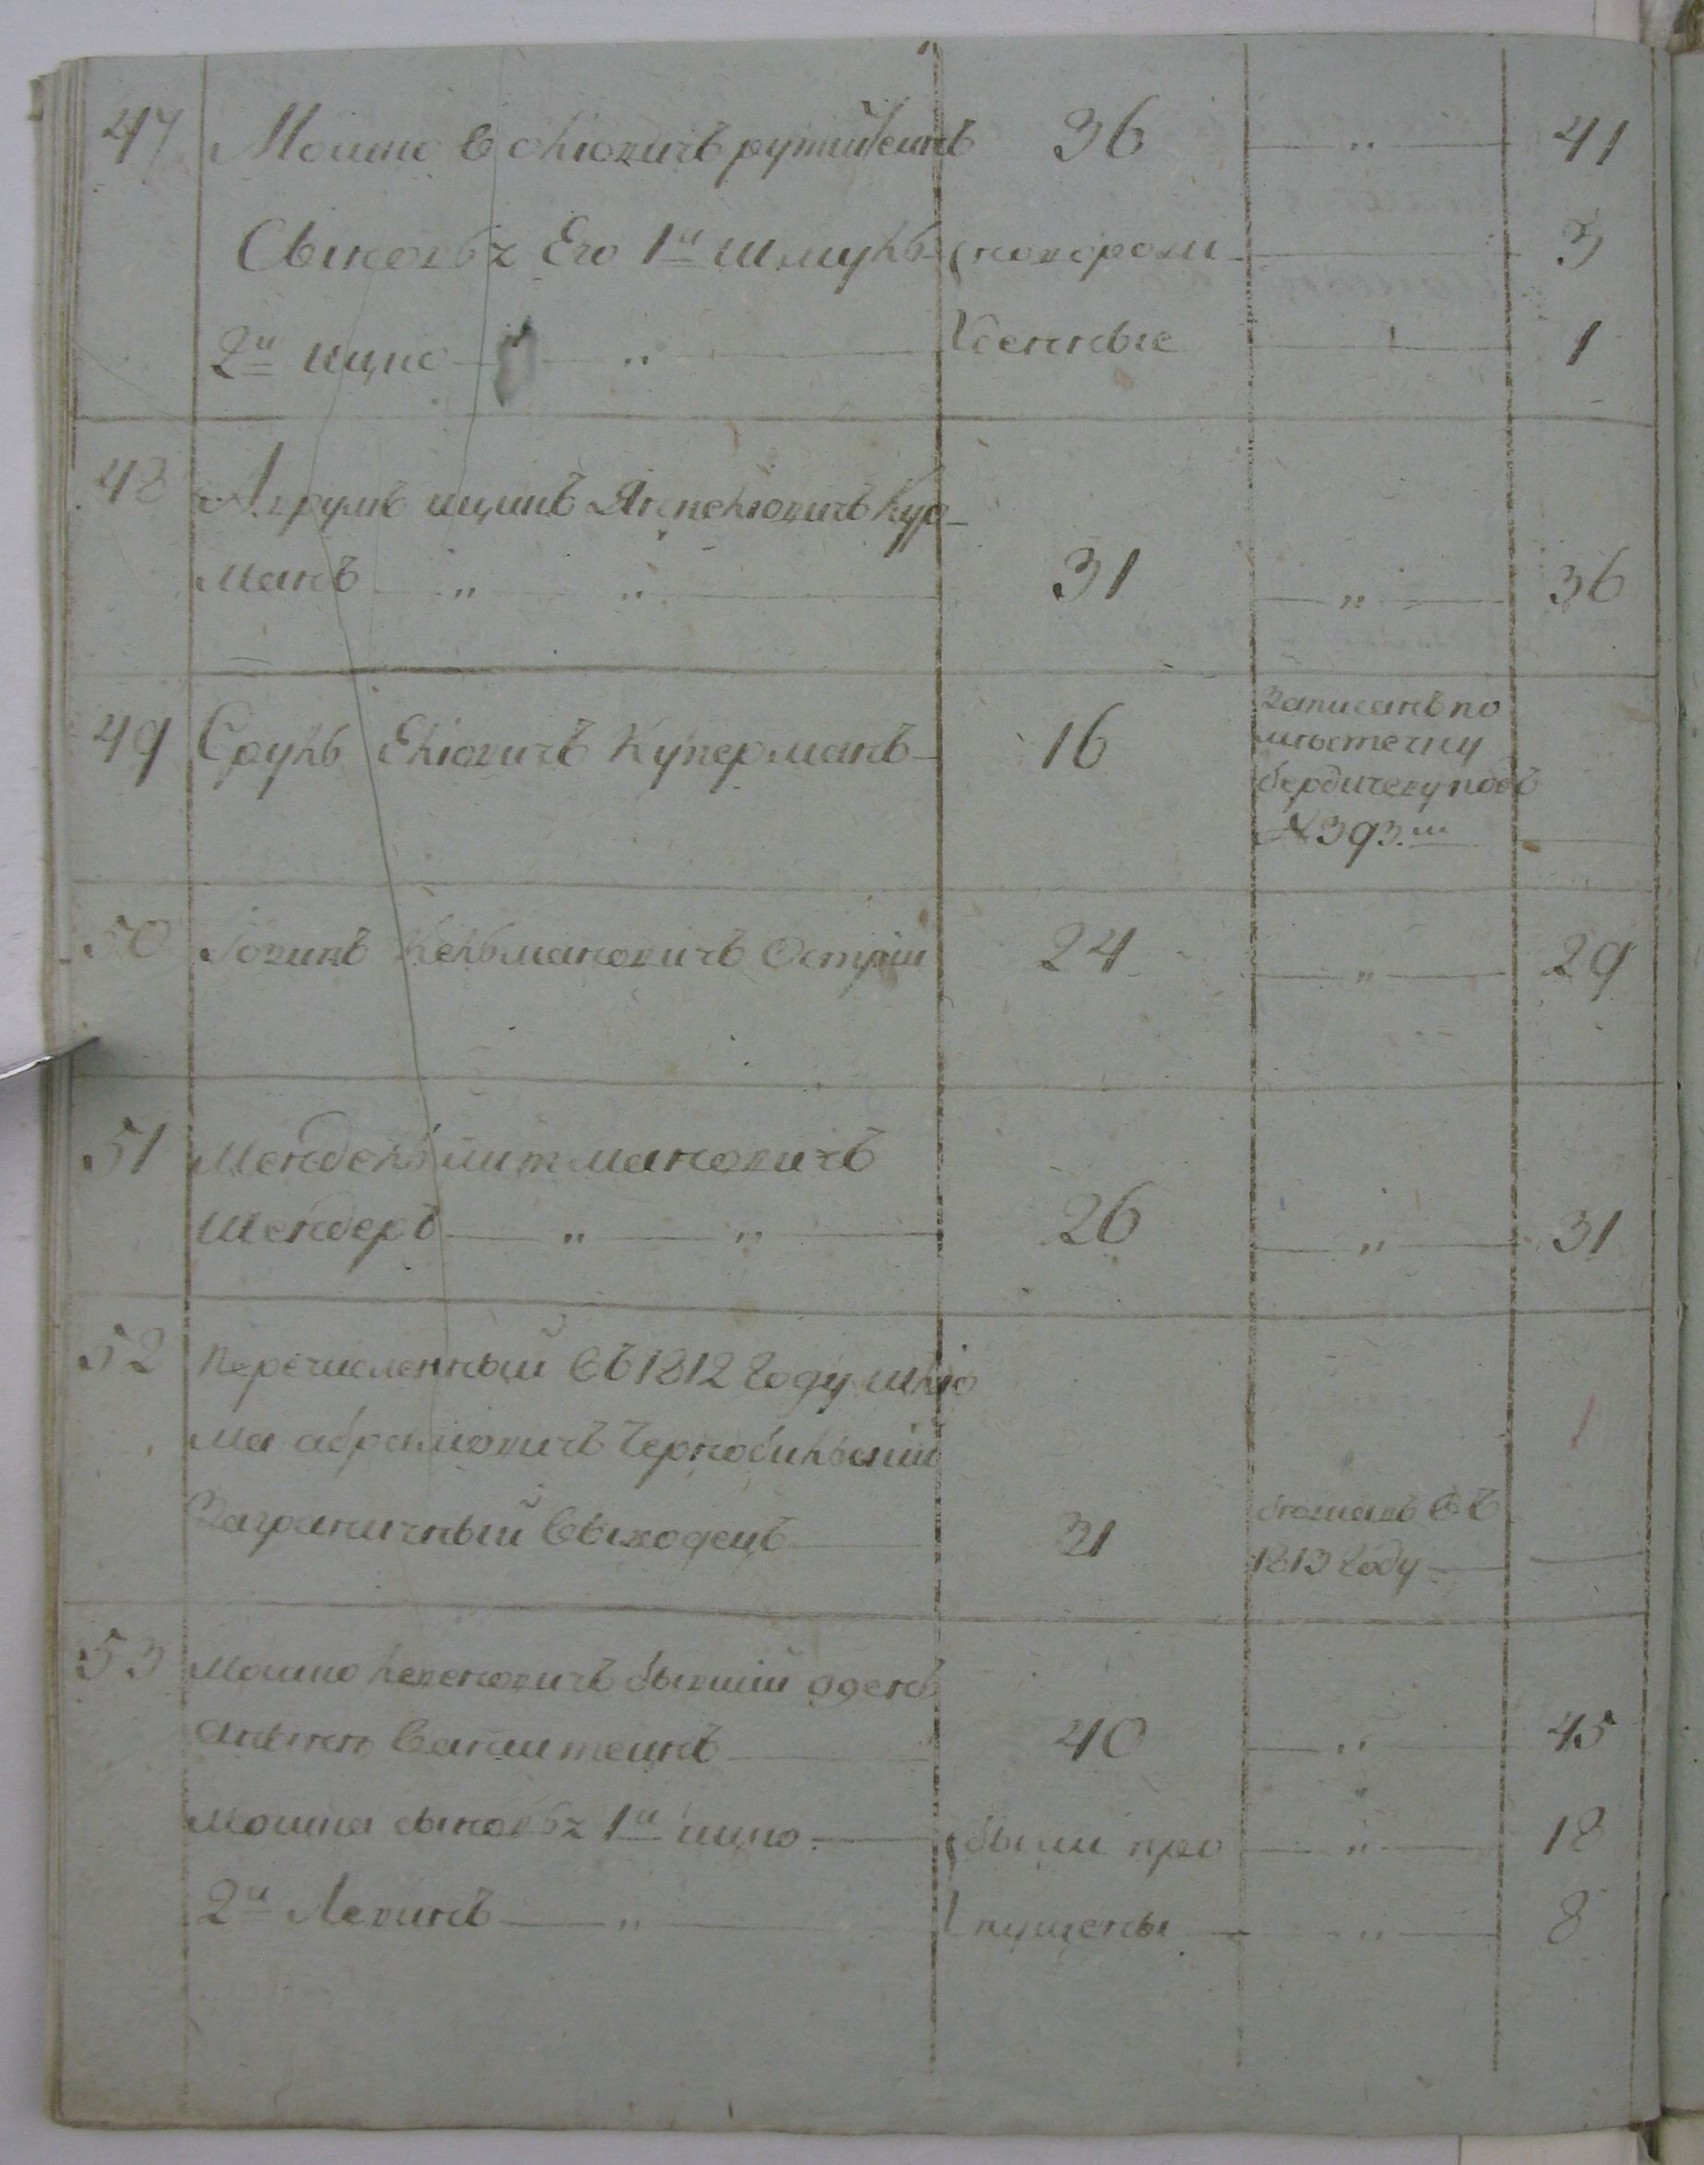 47 Мошко Волковичъ 36 — " — 41
Сыновья Его 1й Шмуль новорож — 3
2й ицко — " — денные — 1
48 Аврумъ ицикъ Янкелювичъ Кур-
манъ — " — " — 31 — " — 36
49 Сруль Елювичъ Куперманъ — 16 Записанъ по
мѣстечку
бердичеву подъ
№ 393м —
50 Іовинъ Кельмановичъ Острій 24 — " — 29
51 Мендель литмановичъ
Шендеръ — " — " — 26 — " — 31
52 Перечисленный въ 1812 Году шлио
ма абрамовичъ Чернобильскій
Заграничный выходецъ — 31 бежалъ въ
1813 Году —
53 Мошко Лейбовичъ бывшій
Ванштеинъ — 40 — " — 45
Мошка сыновья 1й ицко — были про — " — 18
2й Левикъ — " — пущены — " — 8